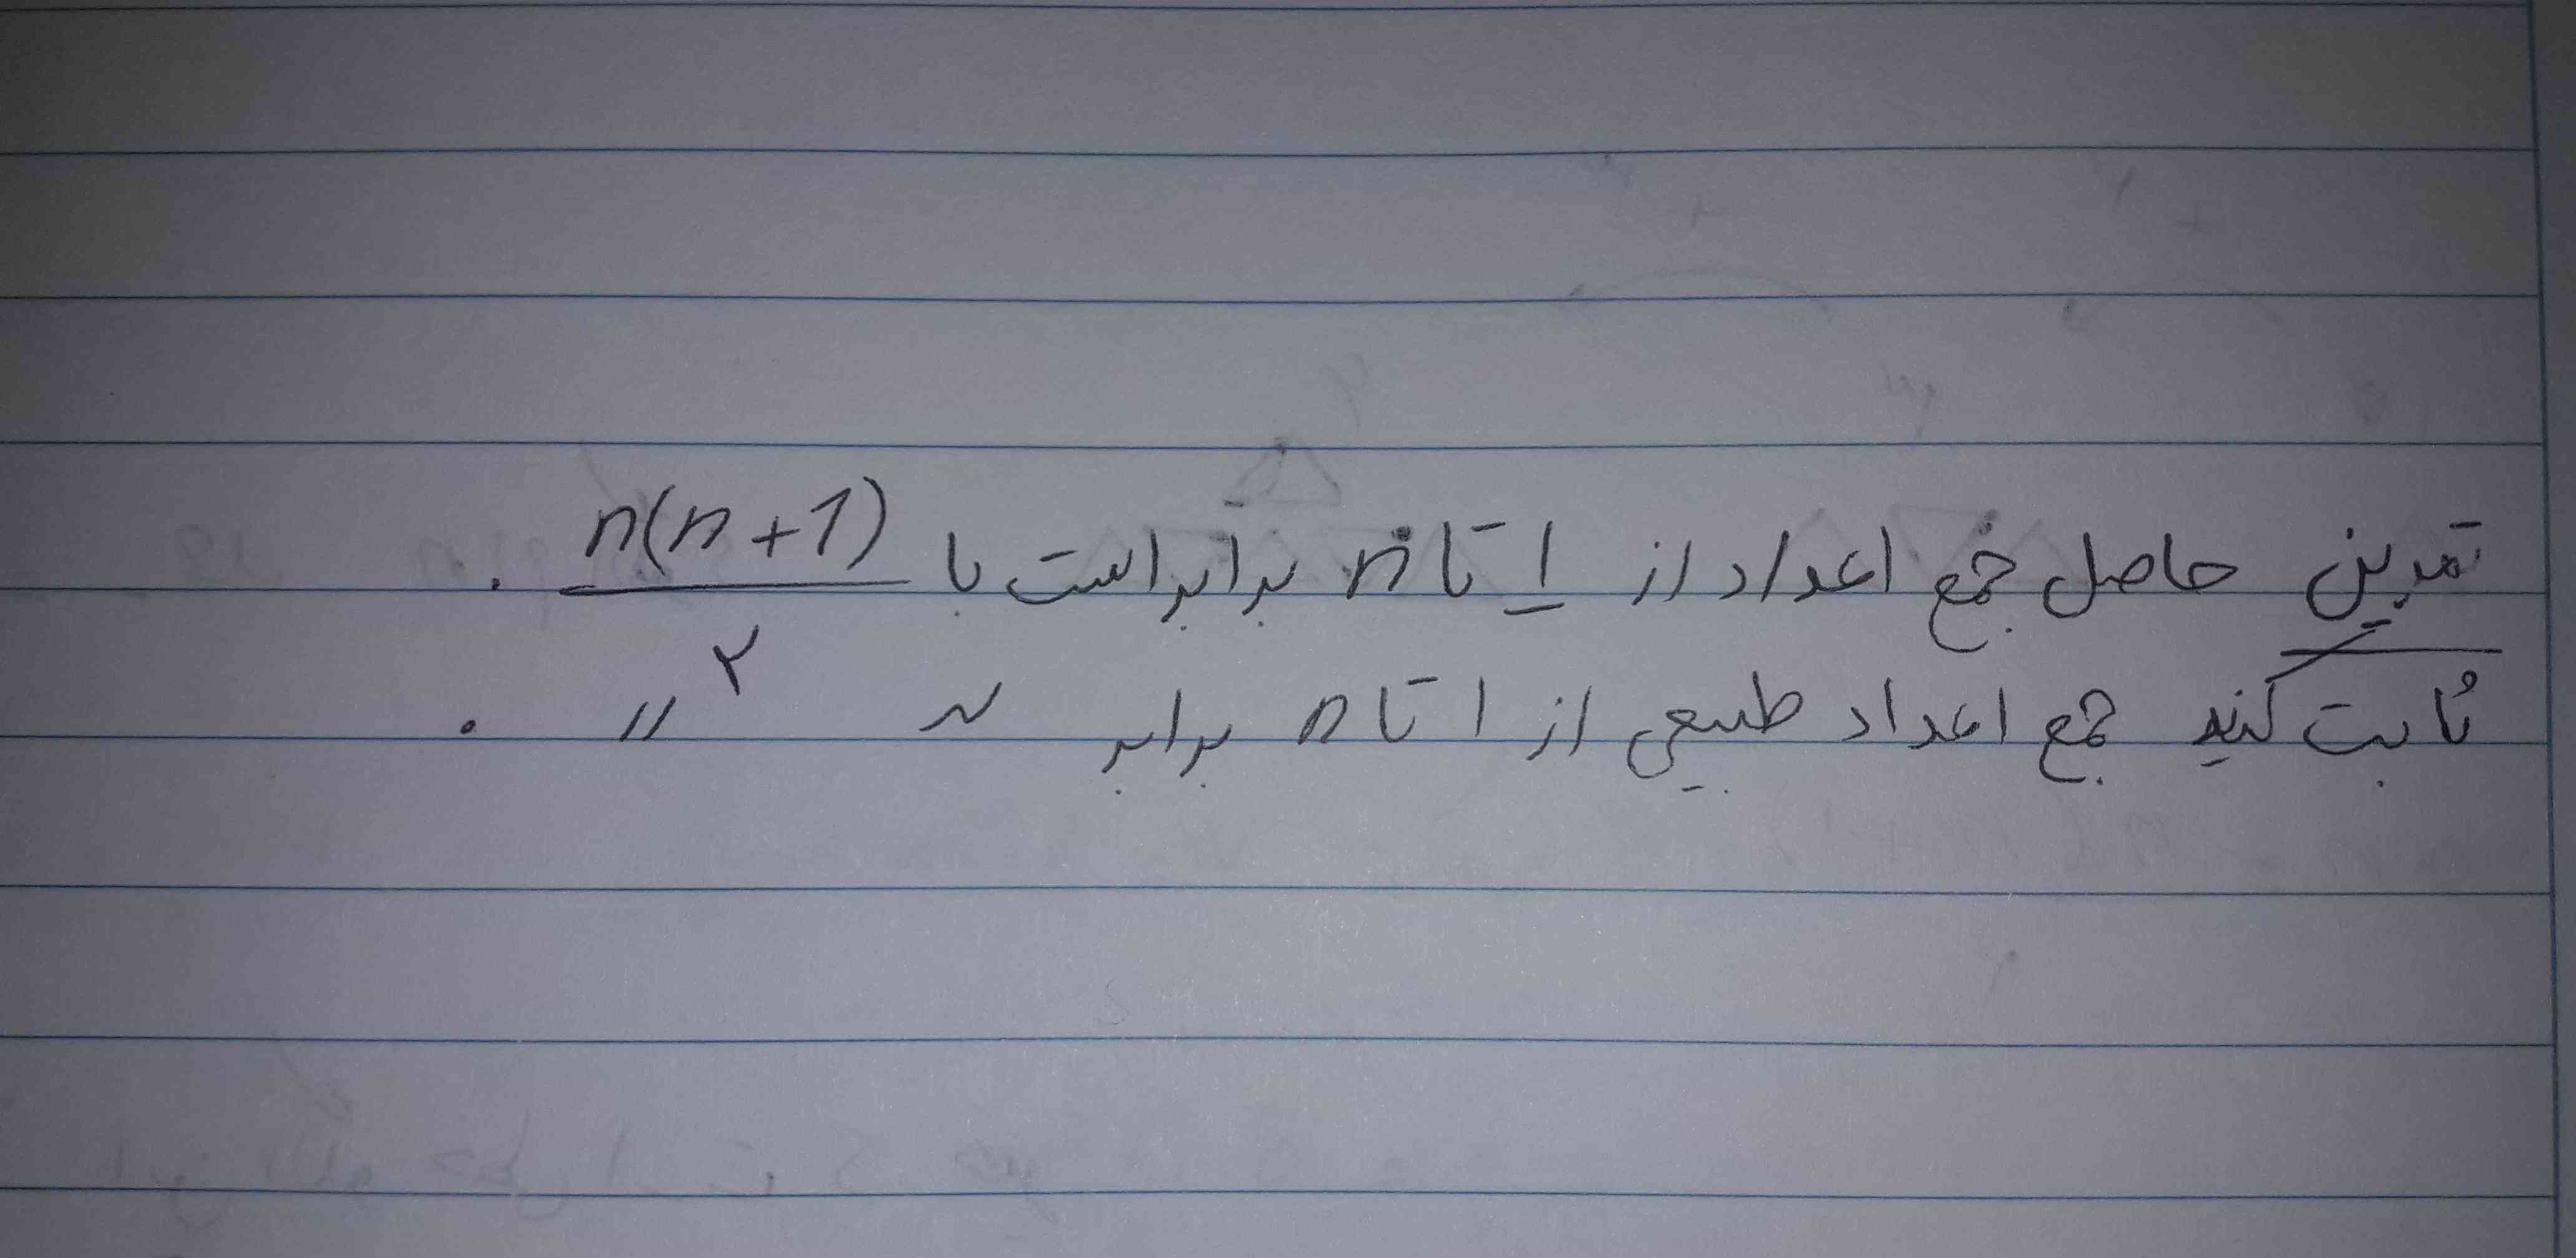 تمرین حاصل جمع اعداد از ۱ تا n برابر است با n(n+1)/۲ .
ثابت کنید جمع اعداد طبیعی از ۱ تا n برابر 〃 .